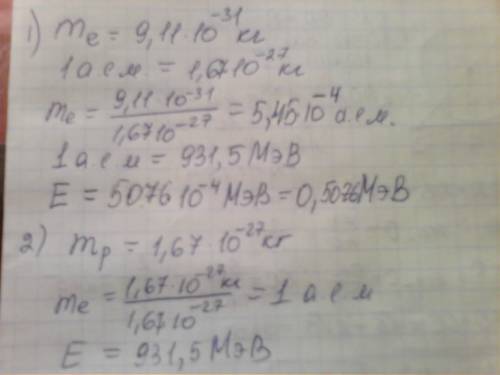 1) me = 9,11·10⁻³¹ кг
1 а е м. = 1,67 10⁻²⁷ кг
me = 9,11·10⁻³¹ / 1,67 10⁻²⁷ = 5,45 10⁻⁴ а.е.м.
1 а е м = 931,5 МэВ
E = 5076 10⁻⁴ МэВ = 0,5076 МэВ
2) mp = 1,67 · 10⁻²⁷ кг
me = 1,67·10⁻²⁷ кг / 1,67 10⁻²⁷ = 1 а е м
E = 931,5 МэВ